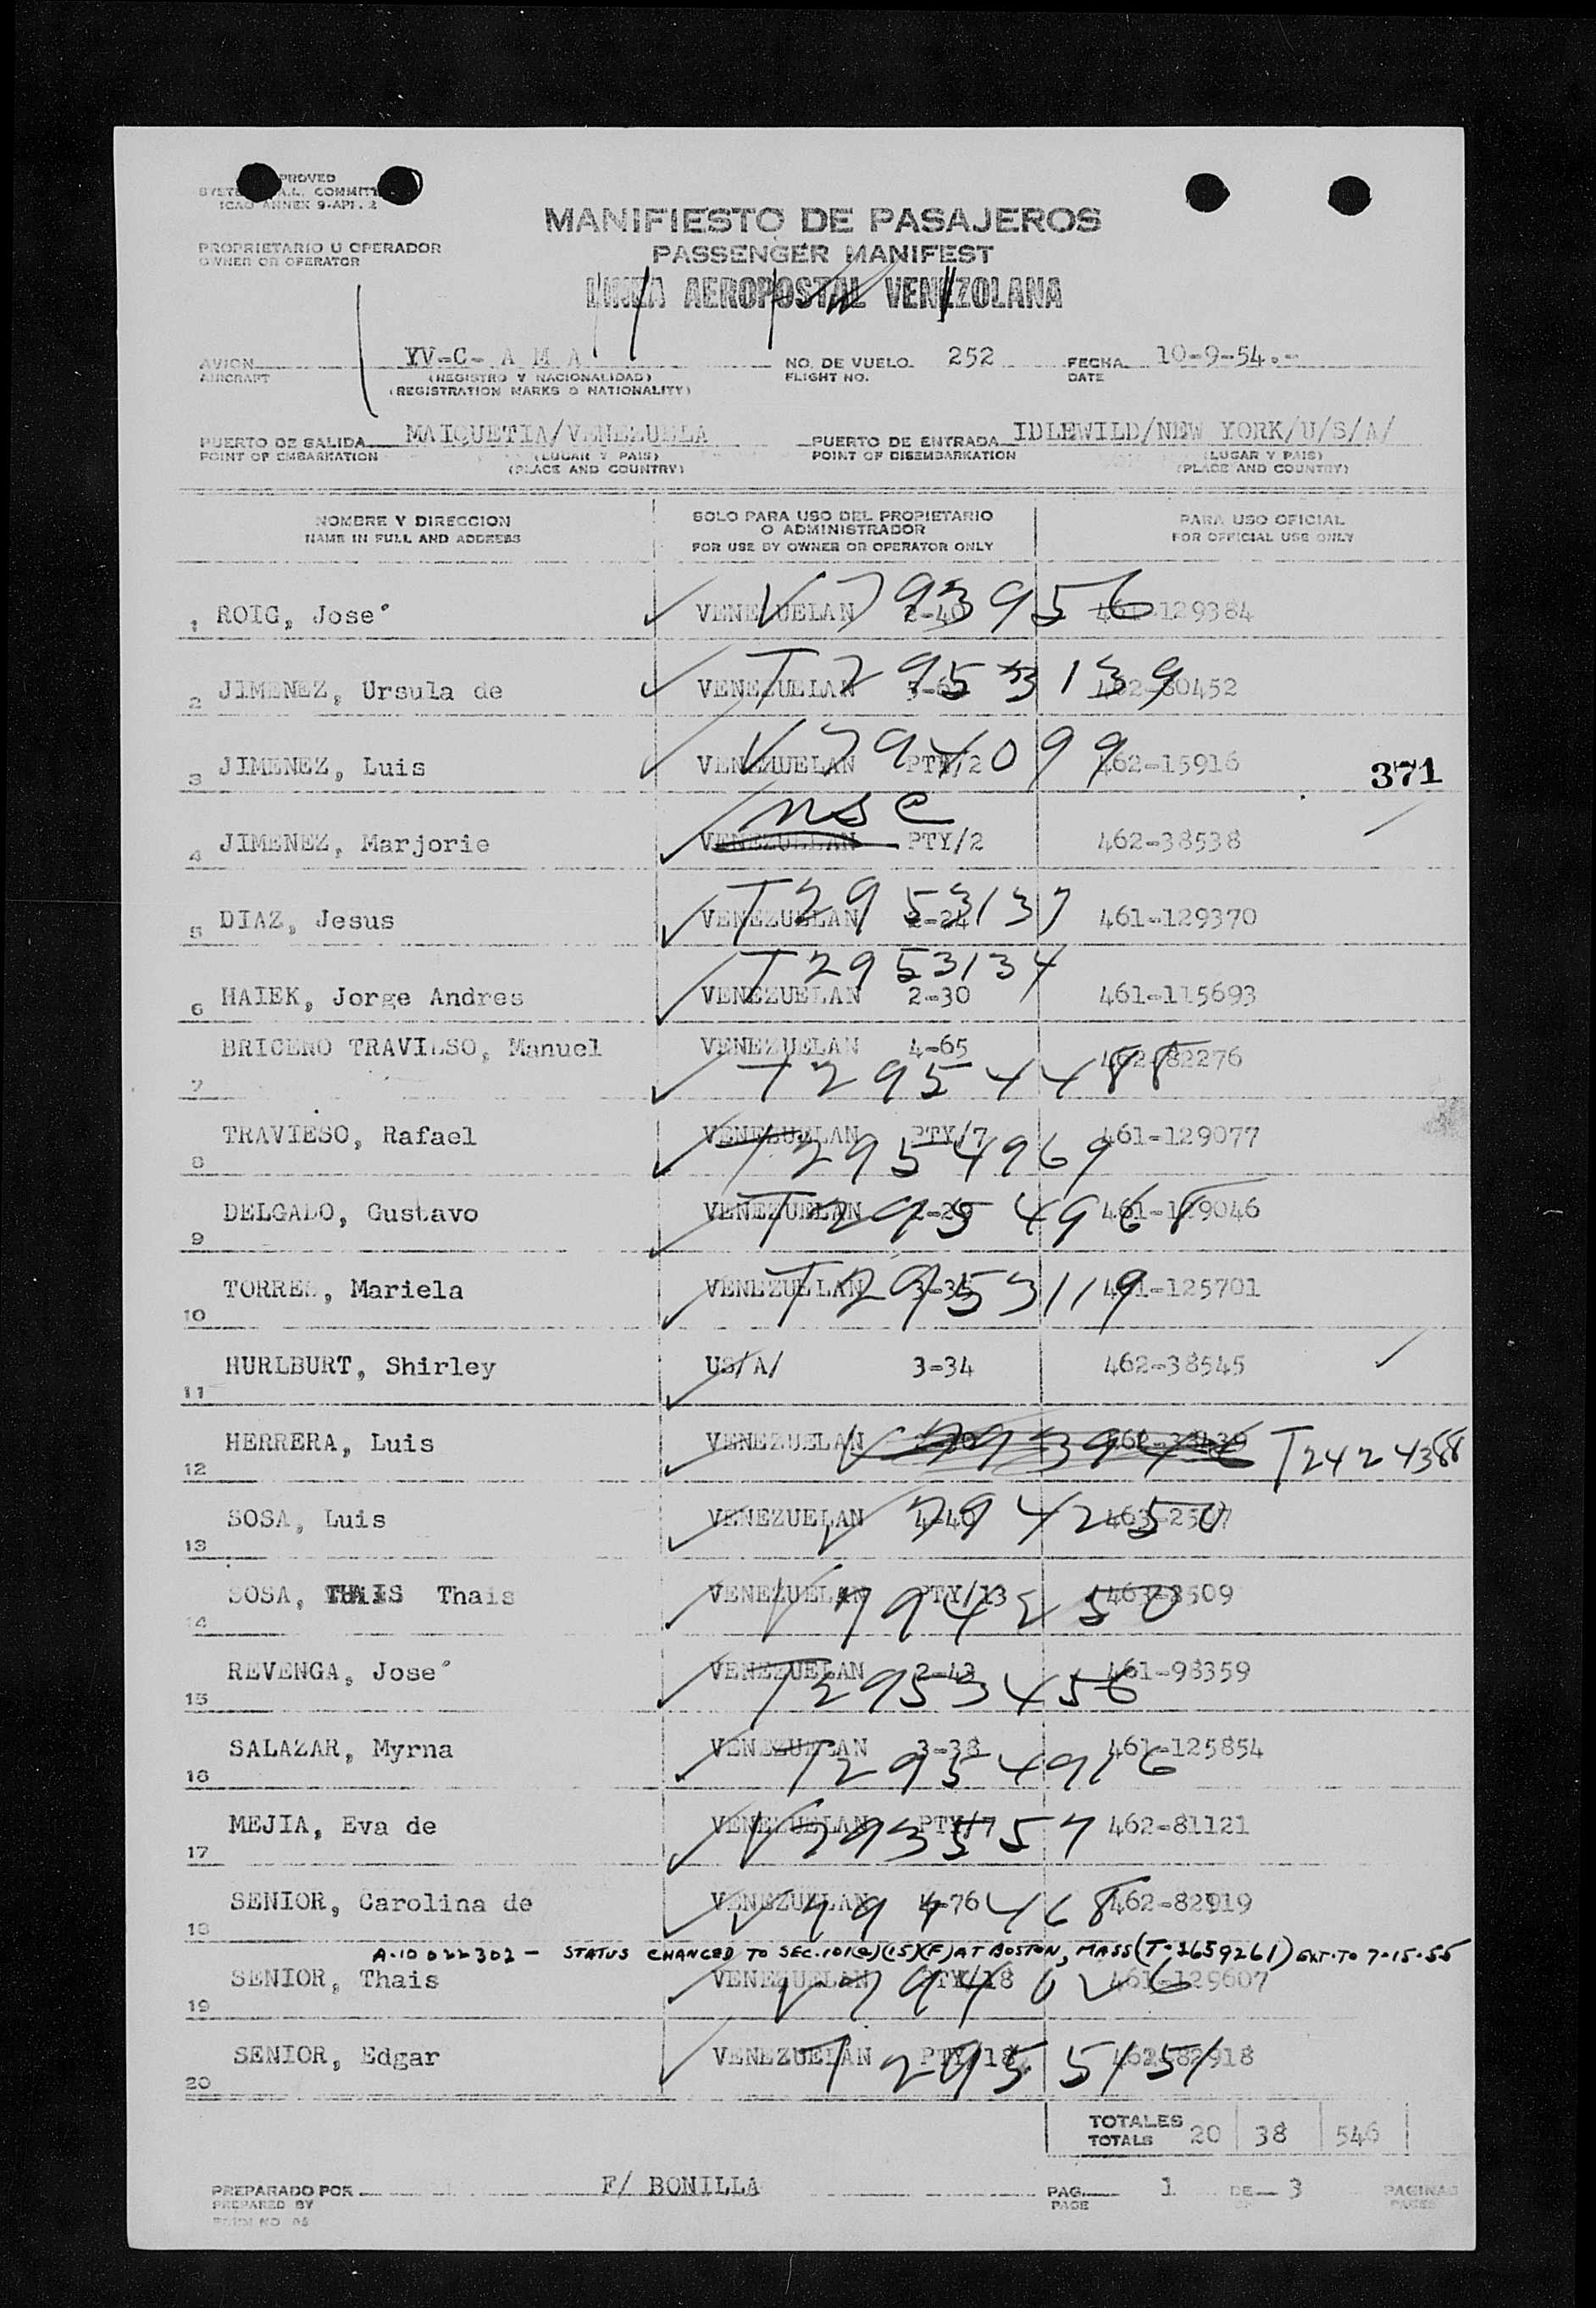 PROVED
COMMITT
ICAO ANNEX 9-AP1. 2
PROPRIETARIO U OPERADOR
OWNER OR OPERATOR
MANIFIESTO DE PASAJEROS
PASSENGER MANIFEST
LINEA AEROPOSTAL VENEZOLANA
AVION YV-C- A M A NO. DE VUELO 252 FECHA 10-9-54.-
AIRCRAFT (REGISTRO Y NACIONALIDAD) FLIGHT NO. DATE
(REGISTRATION MARKS & NATIONALITY)
PUERTO DE SALIDA MAIQUETIA/VENEZUELA PUERTO DE ENTRADA IDLEWILD/NEW YORK/U/S/A/
POINT OF EMBARKATION (LUGAR Y PAIS) POINT OF DISEMBARKATION (LUGAR Y PAIS)
(PLACE AND COUNTRY) (PLACE AND COUNTRY)
NOMBRE Y DIRECCION SOLO PARA USO DEL PROPIETARIO PARA USO OFICIAL
NAME IN FULL AND ADDRESS O ADMINISTRADOR FOR OFFICIAL USE ONLY
FOR USE BY OWNER OR OPERATOR ONLY
V793956
1 ROIG, Jose´ VENEZUELAN 2-40 461-129384
T2953139
2 JIMENEZ, Ursula de VENEZUELAN 462-80452
V794099
3 JIMENEZ, Luis VENEZUELAN PTY/2 462-15916
371
usc
4 JIMENEZ, Marjorie VENEZUELAN PTY/2 462-38538
T2953137
5 DIAZ, Jesus VENEZUELAN 2-24 461-129370
T2953134
6 HAIEK, Jorge Andres VENEZUELAN 2-30 461-115693
7 BRICENO TRAVIESO, Manuel VENEZUELAN 4-65 462-82276
T2954488
8 TRAVIESO, Rafael VENEZUELAN PTY/7 461-129077
T2954969
9 DELGADO, Gustavo VENEZUELAN 2-29 461-129046
T2954968
10 TORRES, Mariela VENEZUELAN 461-125701
T2953119
11 HURLBURT, Shirley US/A/ 3-34 462-38545
12 HERRERA, Luis VENEZUELAN T2424388
13 SOSA, Luis VENEZUELAN 4-40 463-2507
V794250
14 SOSA, THAIS Thais VENEZUELAN PTY/13 463-2509
V794250
15 REVENGA, Jose´ VENEZUELAN 2-43 461-98359
T2953456
16 SALAZAR, Myrna VENEZUELAN 3-38 461-125854
T2954916
17 MEJIA, Eva de VENEZUELAN PTY/7 462-81121
V793557
18 SENIOR, Carolina de VENEZUELAN 4-76 462-82919
V794468
A-10 022302 - STATUS CHANGED TO SEC.101(a)(15)(F) AT BOSTON, MASS (T-2659261) EXT. TO 7-15-55
19 SENIOR, Thais VENEZUELAN PTY/18 461-129607
20 SENIOR, Edgar VENEZUELAN PTY/18 462-82918
T2955151
TOTALES 20 38 546
TOTALS
PREPARADO POR F/ BONILLA PAG. 1 DE 3 PAGINAS
PREPARED BY PAGE PAGES
FORM NO